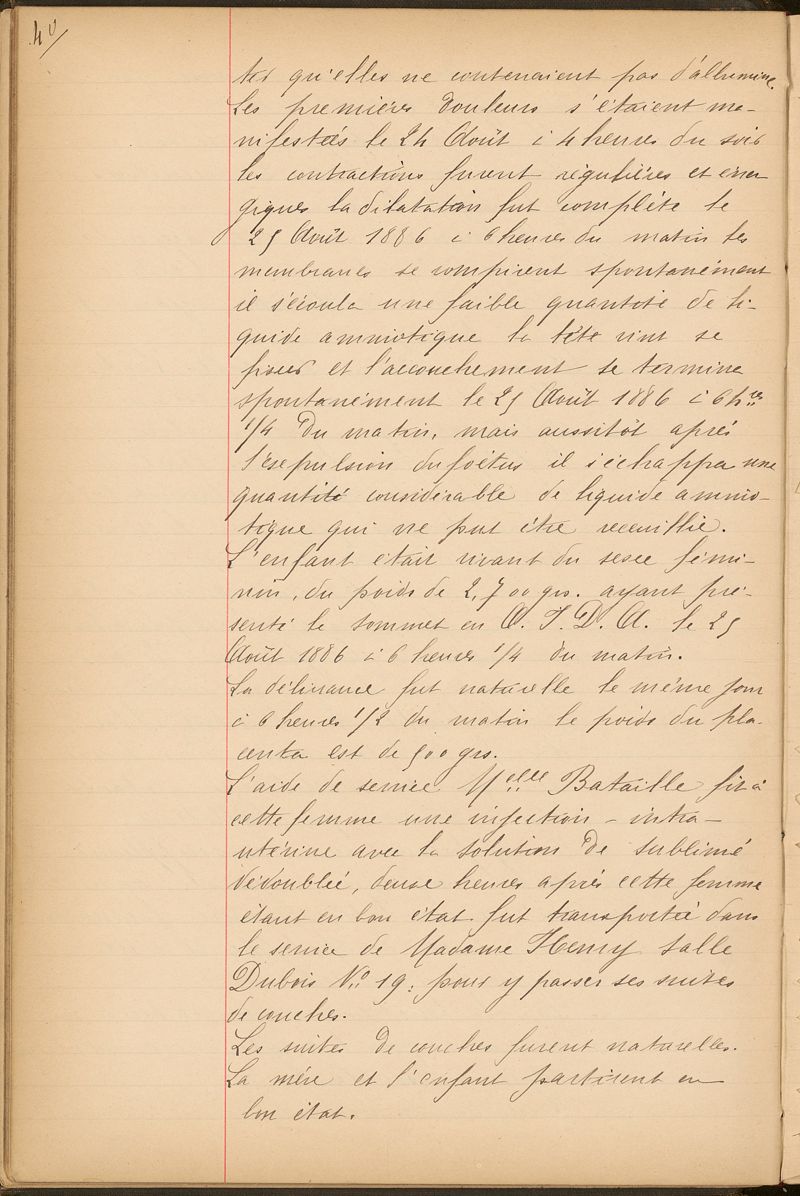 40/
tes qu'elles ne contenaient pas d'albumine.
Les premières douleurs s'étaient ma-
nifestées le 24 Août à 4 heures du soir
les contractions furent régulières et éner
giques la dilatation fut complète le
25 Août 1886 à 6 heures du matin les
membranes se rompirent spontanément
il s'écoula une faible quantité de li-
quide amniotique la tête vint se
poser et l'accouchement se termine
spontanément le 25 Août 1886 à 6 hres
1/4 du matin, mais aussitôt après
l'esepulsion du foëtus il s'échappa une
quantité considérable de liquide amnio-
tique qui ne put être recueillie.
L'enfant était vivant du sexe fémi-
nin, du poids de 2,700 grs. ayant pré-
senté le sommet en O. I. D. A. le 25
Août 1886 à 6 heures 1/4 du matin.
La délivrance fut naturelle le même jour
à 6 heures 1/2 du matin le poids du pla-
centa est de 500 grs.
L'aide de service Melle Bataille fit à
cette femme une injection - intra -
utérine avec la solution de sublimé
dédoublée, deux heures après cette femme
étant en bon état fut transportée dans
le service de Madame Henry salle
Dubois No 19. pour y passer ses suites
de couches.
Les suites de couches furent naturelles.
La mère et l'enfant partirent en
bon état.